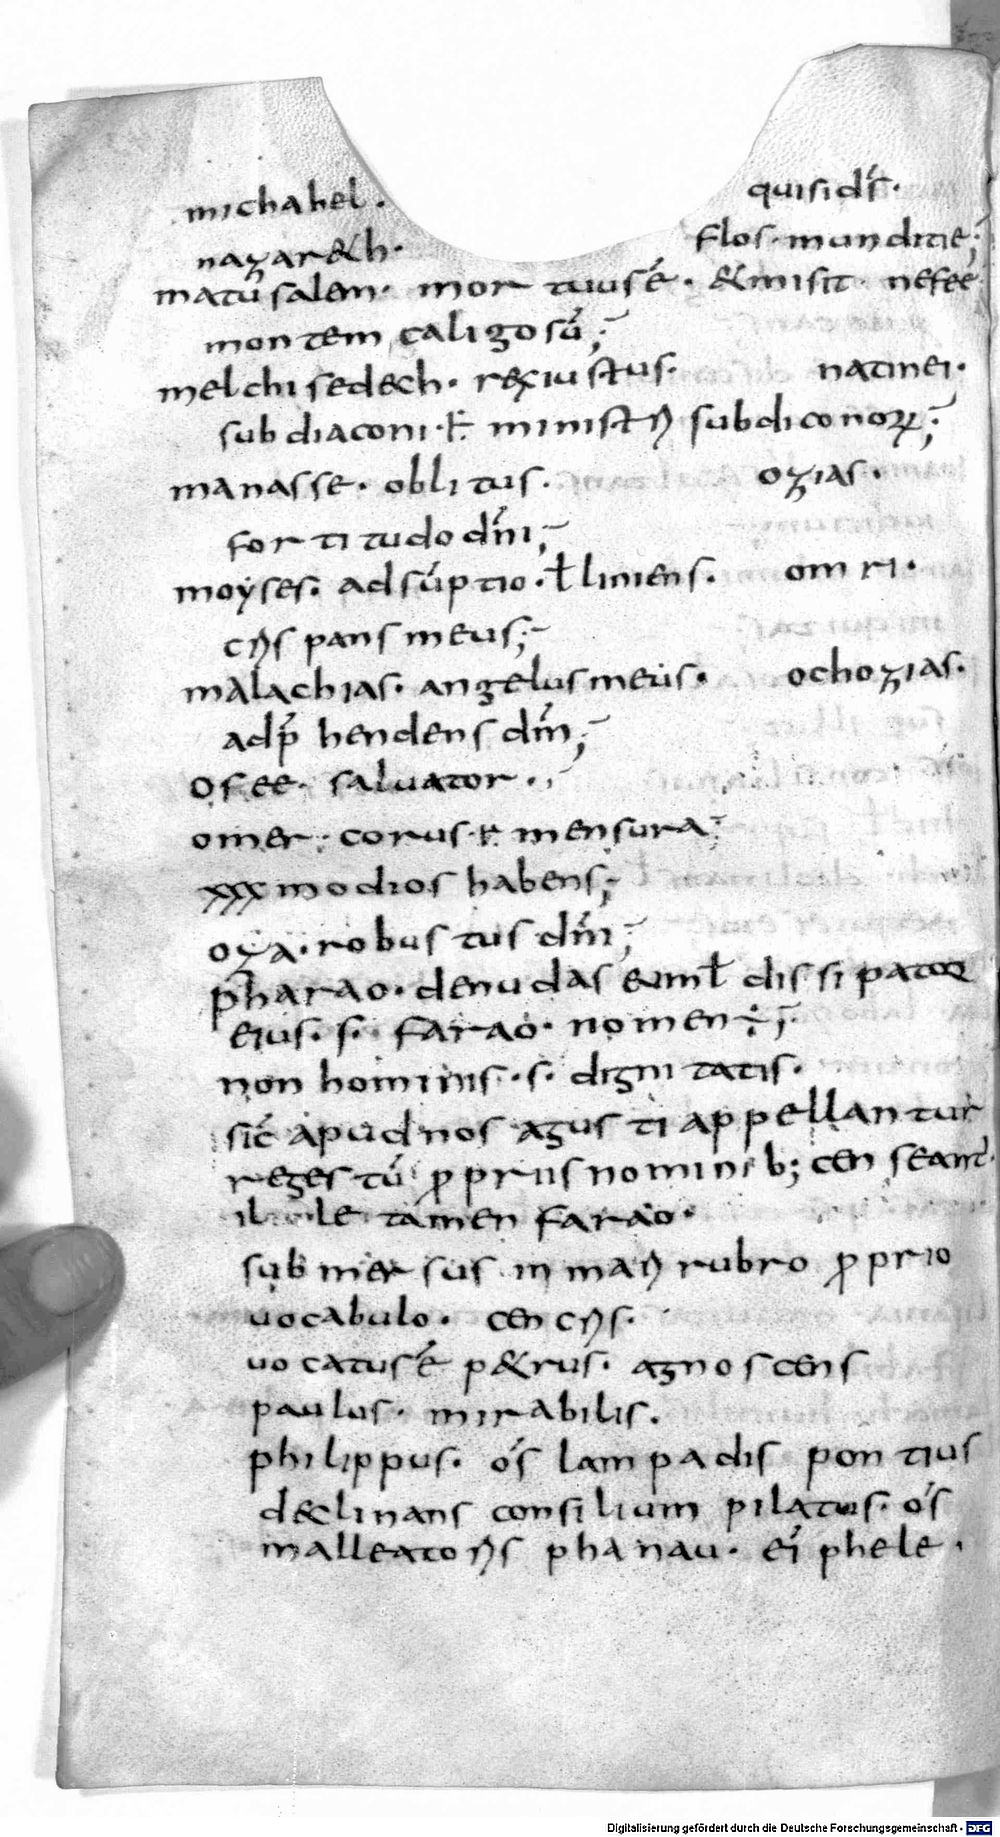 michahel · quisids̄ ·
nazar&h · flos · munditie;
matusalem · mortuus ē · & misit · nefee
montem caligosū;
melchisedech · rex iustus · natinei ·
subdiaconi · ł ministri subdiconoꝝ;
manasse · oblitus · ozias ·
fortitudo dn̄i;
moyses · adsūptio · ł liniens · omri ·
crispans meus;
malachias · angelus meus · ochozias ·
adp̄hendens dn̄m;
osee · saluator ·;
omer · corus · ł mensura;
xxx modios habens;
oza · robustus dn̄i;
pharao · denudas eum ł dissipator
eius · s · farao · nomen ÷;
non hominis · s · dignitatis ·
sic̄ apud nos agusti appellantur
reges tū ꝓpriis nominib; censeant̄ ·
ille tamen farao ·
submersus in mari rubro ꝓprio
uocabulo · cencris ·
uocatus ē p&rus · agnoscens
paulus · mirabilis ·
philippus · ós lampadis pontius
declinans consilium pilatus · ós
malleatoris phanau · ei phele ·
Digitalisierung gefördert durch die Deutsche Forschungsgemeinschaft · DFG